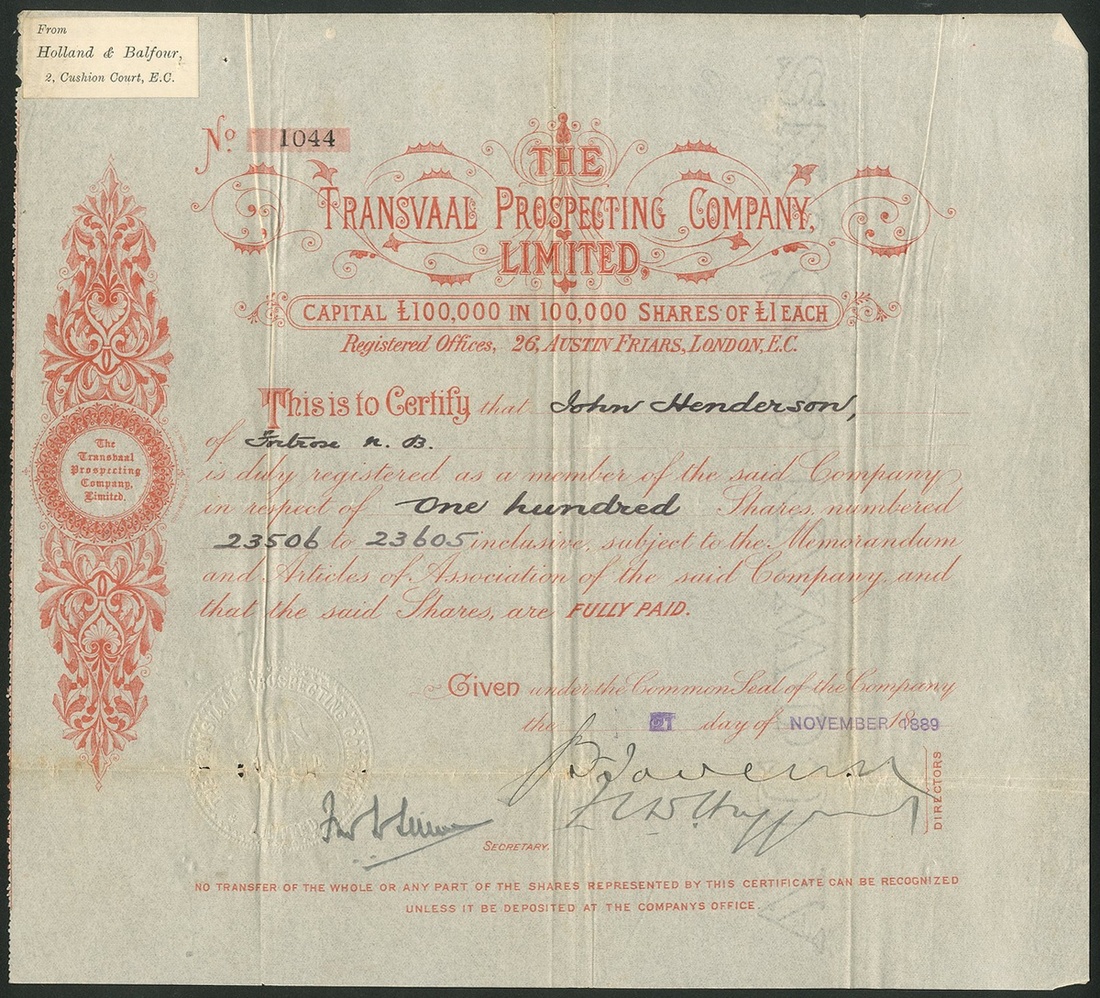 From
Holland & Balfour,
2, Cushion Court, E.C.
No. 1044
THE
TRANSVAAL PROSPECTING COMPANY,
LIMITED,
CAPITAL £100,000 IN 100,000 SHARES OF £1 EACH
Registered Offices, 26, AUSTIN FRIARS, LONDON, E.C.
This is to Certify that John Henderson,
of Fortrose N. B.
is duly registered as a member of the said Company
in respect of One hundred Shares, numbered
23506 to 23605 inclusive, subject to the Memorandum
and Articles of Association of the said Company, and
that the said Shares, are FULLY PAID.
The
Transvaal
Prospecting
Company,
Limited.
Given under the Common Seal of the Company
the day of NOVEMBER 1889
DIRECTORS
SECRETARY.
NO TRANSFER OF THE WHOLE OR ANY PART OF THE SHARES REPRESENTED BY THIS CERTIFICATE CAN BE RECOGNIZED
UNLESS IT BE DEPOSITED AT THE COMPANYS OFFICE.